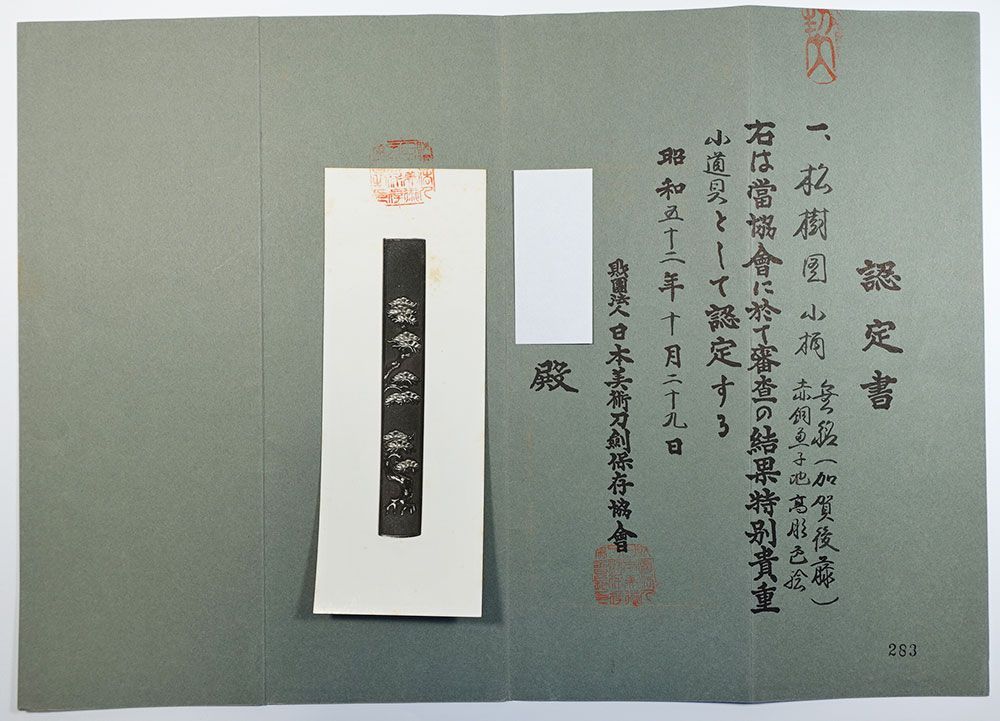 認定書
一、松樹図 小柄 無銘(加賀後藤)
赤銅魚子地高彫色絵
右は當協會に於て審査の結果特別貴重
小道具として認定する
昭和五十二年十月二十九日
財團法人日本美術刀劍保存協會
殿
283